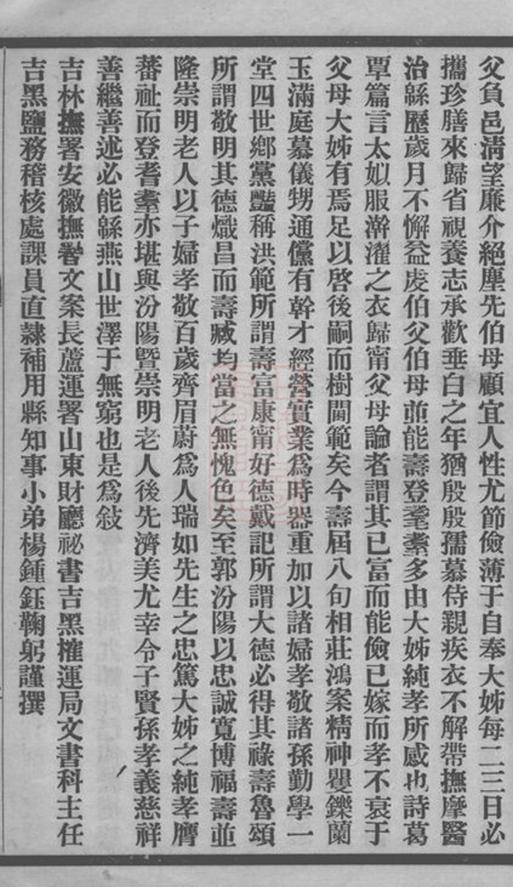 父負邑清望廉介絕塵先伯母顧宜人性尤節儉薄于自奉大姊每二三日必
攜珍膳來歸省視養志承歡垂白之年猶殷殷孺慕侍親疾衣不解帶撫摩醫
治緜歷歲月不懈益虔伯父伯母竝能壽登耄耋多由大姊純孝所感也詩葛
覃篇言太姒服澣濯之衣歸甯父母論者謂其已富而能儉已嫁而孝不衰于
父母大姊有焉足以啓後嗣而樹閫範矣今壽屆八旬相莊鴻案精神矍鑠蘭
玉滿庭慕儀甥通儻有幹才經營實業為時器重加以諸婦孝敬諸孫勤學一
堂四世鄉黨豔稱洪範所謂壽富康甯好德戴記所謂大德必得其祿壽魯頌
所謂敬明其德熾昌而壽臧均當之無愧色矣至郭汾陽以忠誠寬博福壽並
隆崇明老人以子婦孝敬百歲齊眉蔚為人瑞如先生之忠篤大姊之純孝膺
蕃祉而登耆耋亦堪與汾陽暨崇明老人後先濟美尤幸令子賢孫孝義慈祥
善繼善述必能緜燕山世澤于無窮也是為敍
吉林撫署安徽撫署文案長蘆運署山東財廳祕書吉黑榷運局文書科主任
吉黑鹽務稽核處課員直隸補用縣知事小弟楊鍾鈺鞠躬謹撰